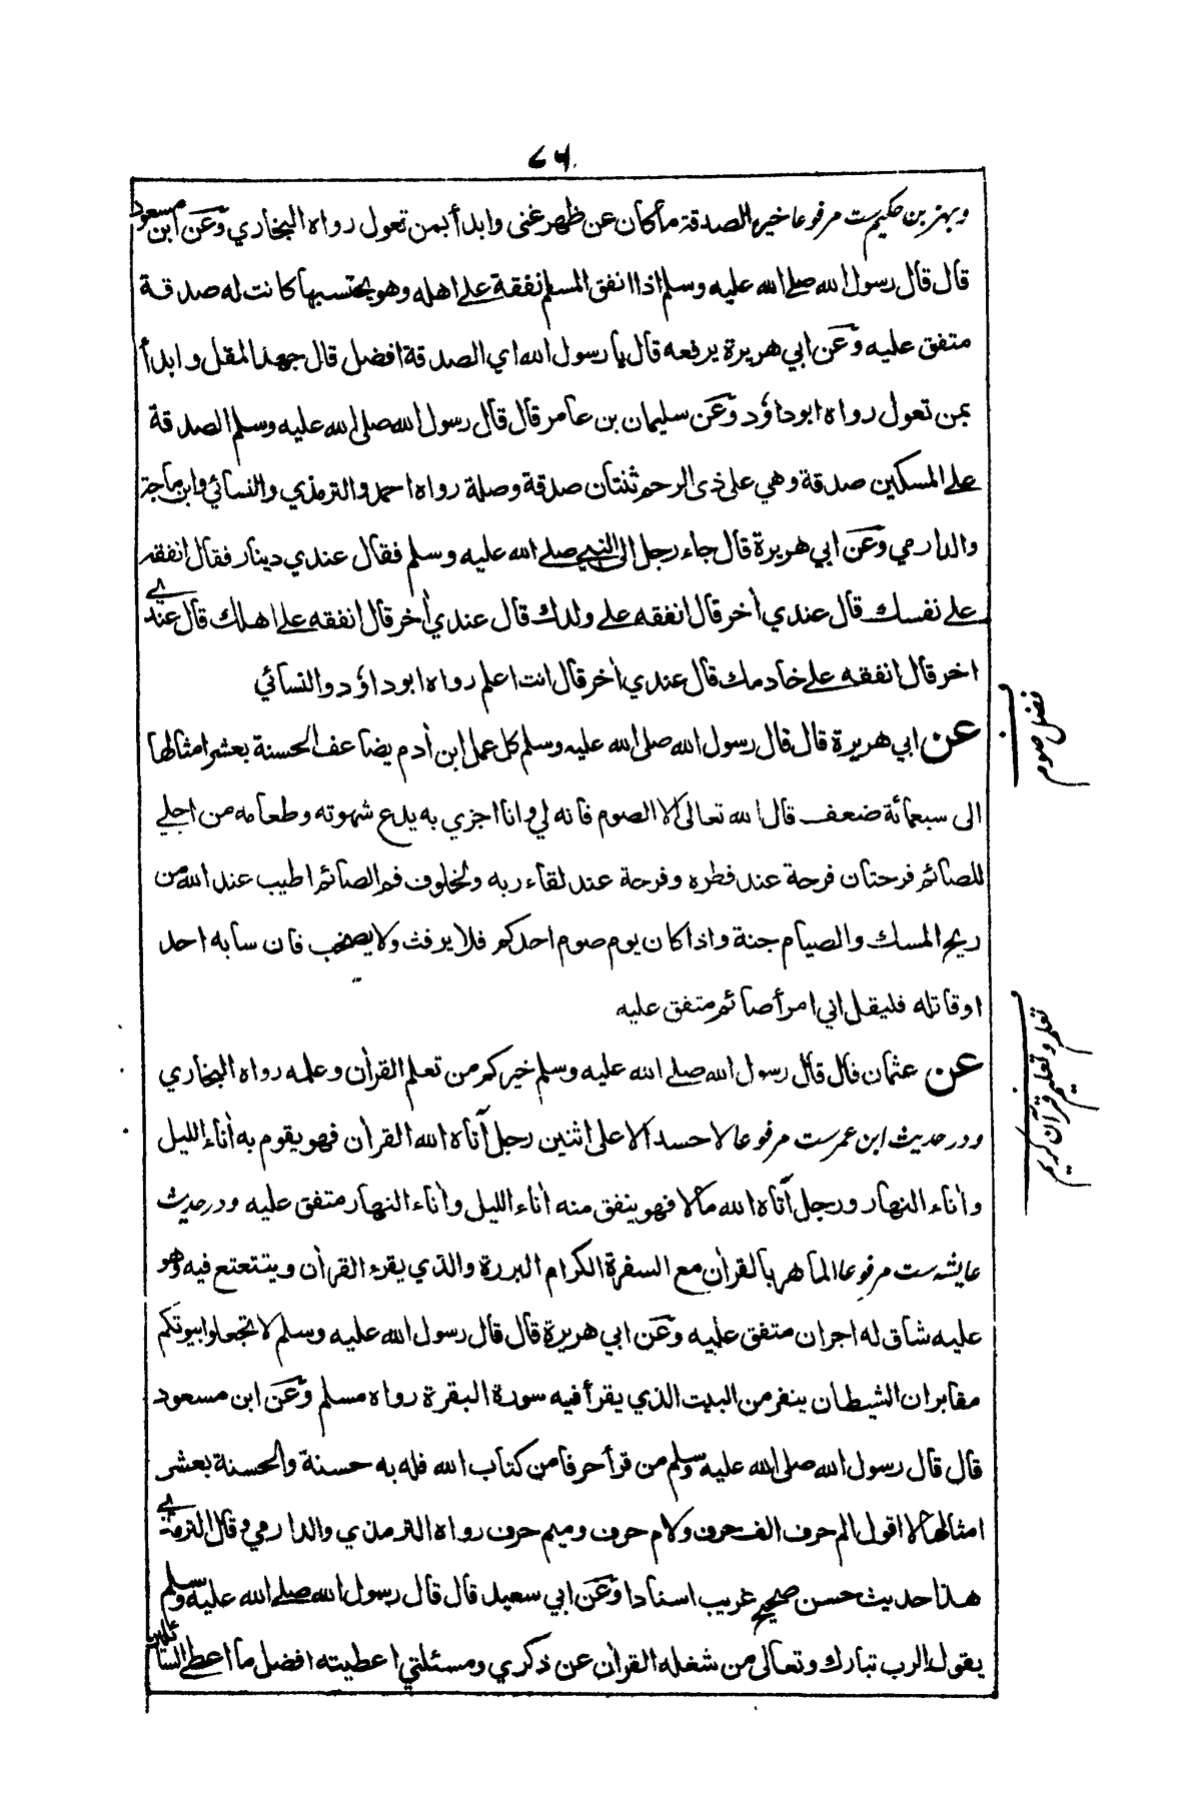 ٧٦
وبهز بن حكيم ست مرفوعا خير الصدقة ما كان عن ظهر غنى وابدأ بمن تعول رواه البخاري وعن ابن مسعود
قال قال رسول الله صلى الله عليه وسلم اذا انفق المسلم نفقة على اهله وهو يحتسبها كانت له صدقة
متفق عليه وعن ابي هريرة يرفعه قال يا رسول الله اي الصدقة افضل قال جهد المقل وابدأ
بمن تعول رواه ابوداؤد وعن سليمان بن عامر قال قال رسول الله صلى الله عليه وسلم الصدقة
على المسكين صدقة وهي على ذى الرحم ثنتان صدقة وصلة رواه احمد والترمذي والنسائي وابن ماجة
والدارمي وعن ابي هريرة قال جاء رجل الى النبي صلى الله عليه وسلم فقال عندي دينار فقال انفقه
على نفسك قال عندي أخر قال انفقه على ولدك قال عندي أخر قال انفقه على اهلك قال عندي
اخر قال انفقه على خادمك قال عندي أخر قال انت اعلم رواه ابوداؤد والنسائي
عن ابي هريرة قال قال رسول الله صلى الله عليه وسلم كل عمل ابن أدم يضاعف الحسنة بعشر امثالها
الى سبعمائة ضعف قال الله تعالى الا الصوم فانه لي وانا اجزي به يدع شهوته وطعامه من اجلي
للصائم فرحتان فرحة عند فطره وفرحة عند لقاء ربه ولخلوف فم الصائم اطيب عند الله من
ريح المسك والصيام جنة واذا كان يوم صوم احدكم فلا يرفث ولا يصخب فان سابه احد
او قاتله فليقل اني امرأ صائم متفق عليه
عن عثمان قال قال رسول الله صلى الله عليه وسلم خيركم من تعلم القرأن وعلمه رواه البخاري
ودر حديث ابن عمر ست مرفوعا لا حسد الا على اثنين رجل أتاه الله القرأن فهو يقوم به أناء الليل
وأناء النهار ورجل أتاه الله مالا فهو ينفق منه أناء الليل وأناء النهار متفق عليه ودر حديث
عايشه ست مرفوعا الماهر بالقرأن مع السفرة الكرام البررة والذي يقرء القرأن ويتتعتع فيه وهو
عليه شاق له اجران متفق عليه وعن ابي هريرة قال قال رسول الله عليه وسلم لا تجعلوا بيوتكم
مقابر ان الشيطان ينفر من البيت الذي يقرأ فيه سورة البقرة رواه مسلم وعن ابن مسعود
قال قال رسول الله صلى الله عليه وسلم من قرأ حرفا من كتاب الله فله به حسنة والحسنة بعشر
امثالها لا اقول الم حرف الف حرف ولام حرف وميم حرف رواه الترمذي والدارمي وقال الترمذي
هذا حديث حسن صحيح غريب اسنادا وعن ابي سعيد قال قال رسول الله صلى الله عليه وسلم
يقول الرب تبارك وتعالى من شغله القرأن عن ذكري ومسئلتي اعطيته افضل ما اعطي السائلين
فضل صوم
تعلم وتعليم قرآن كريم